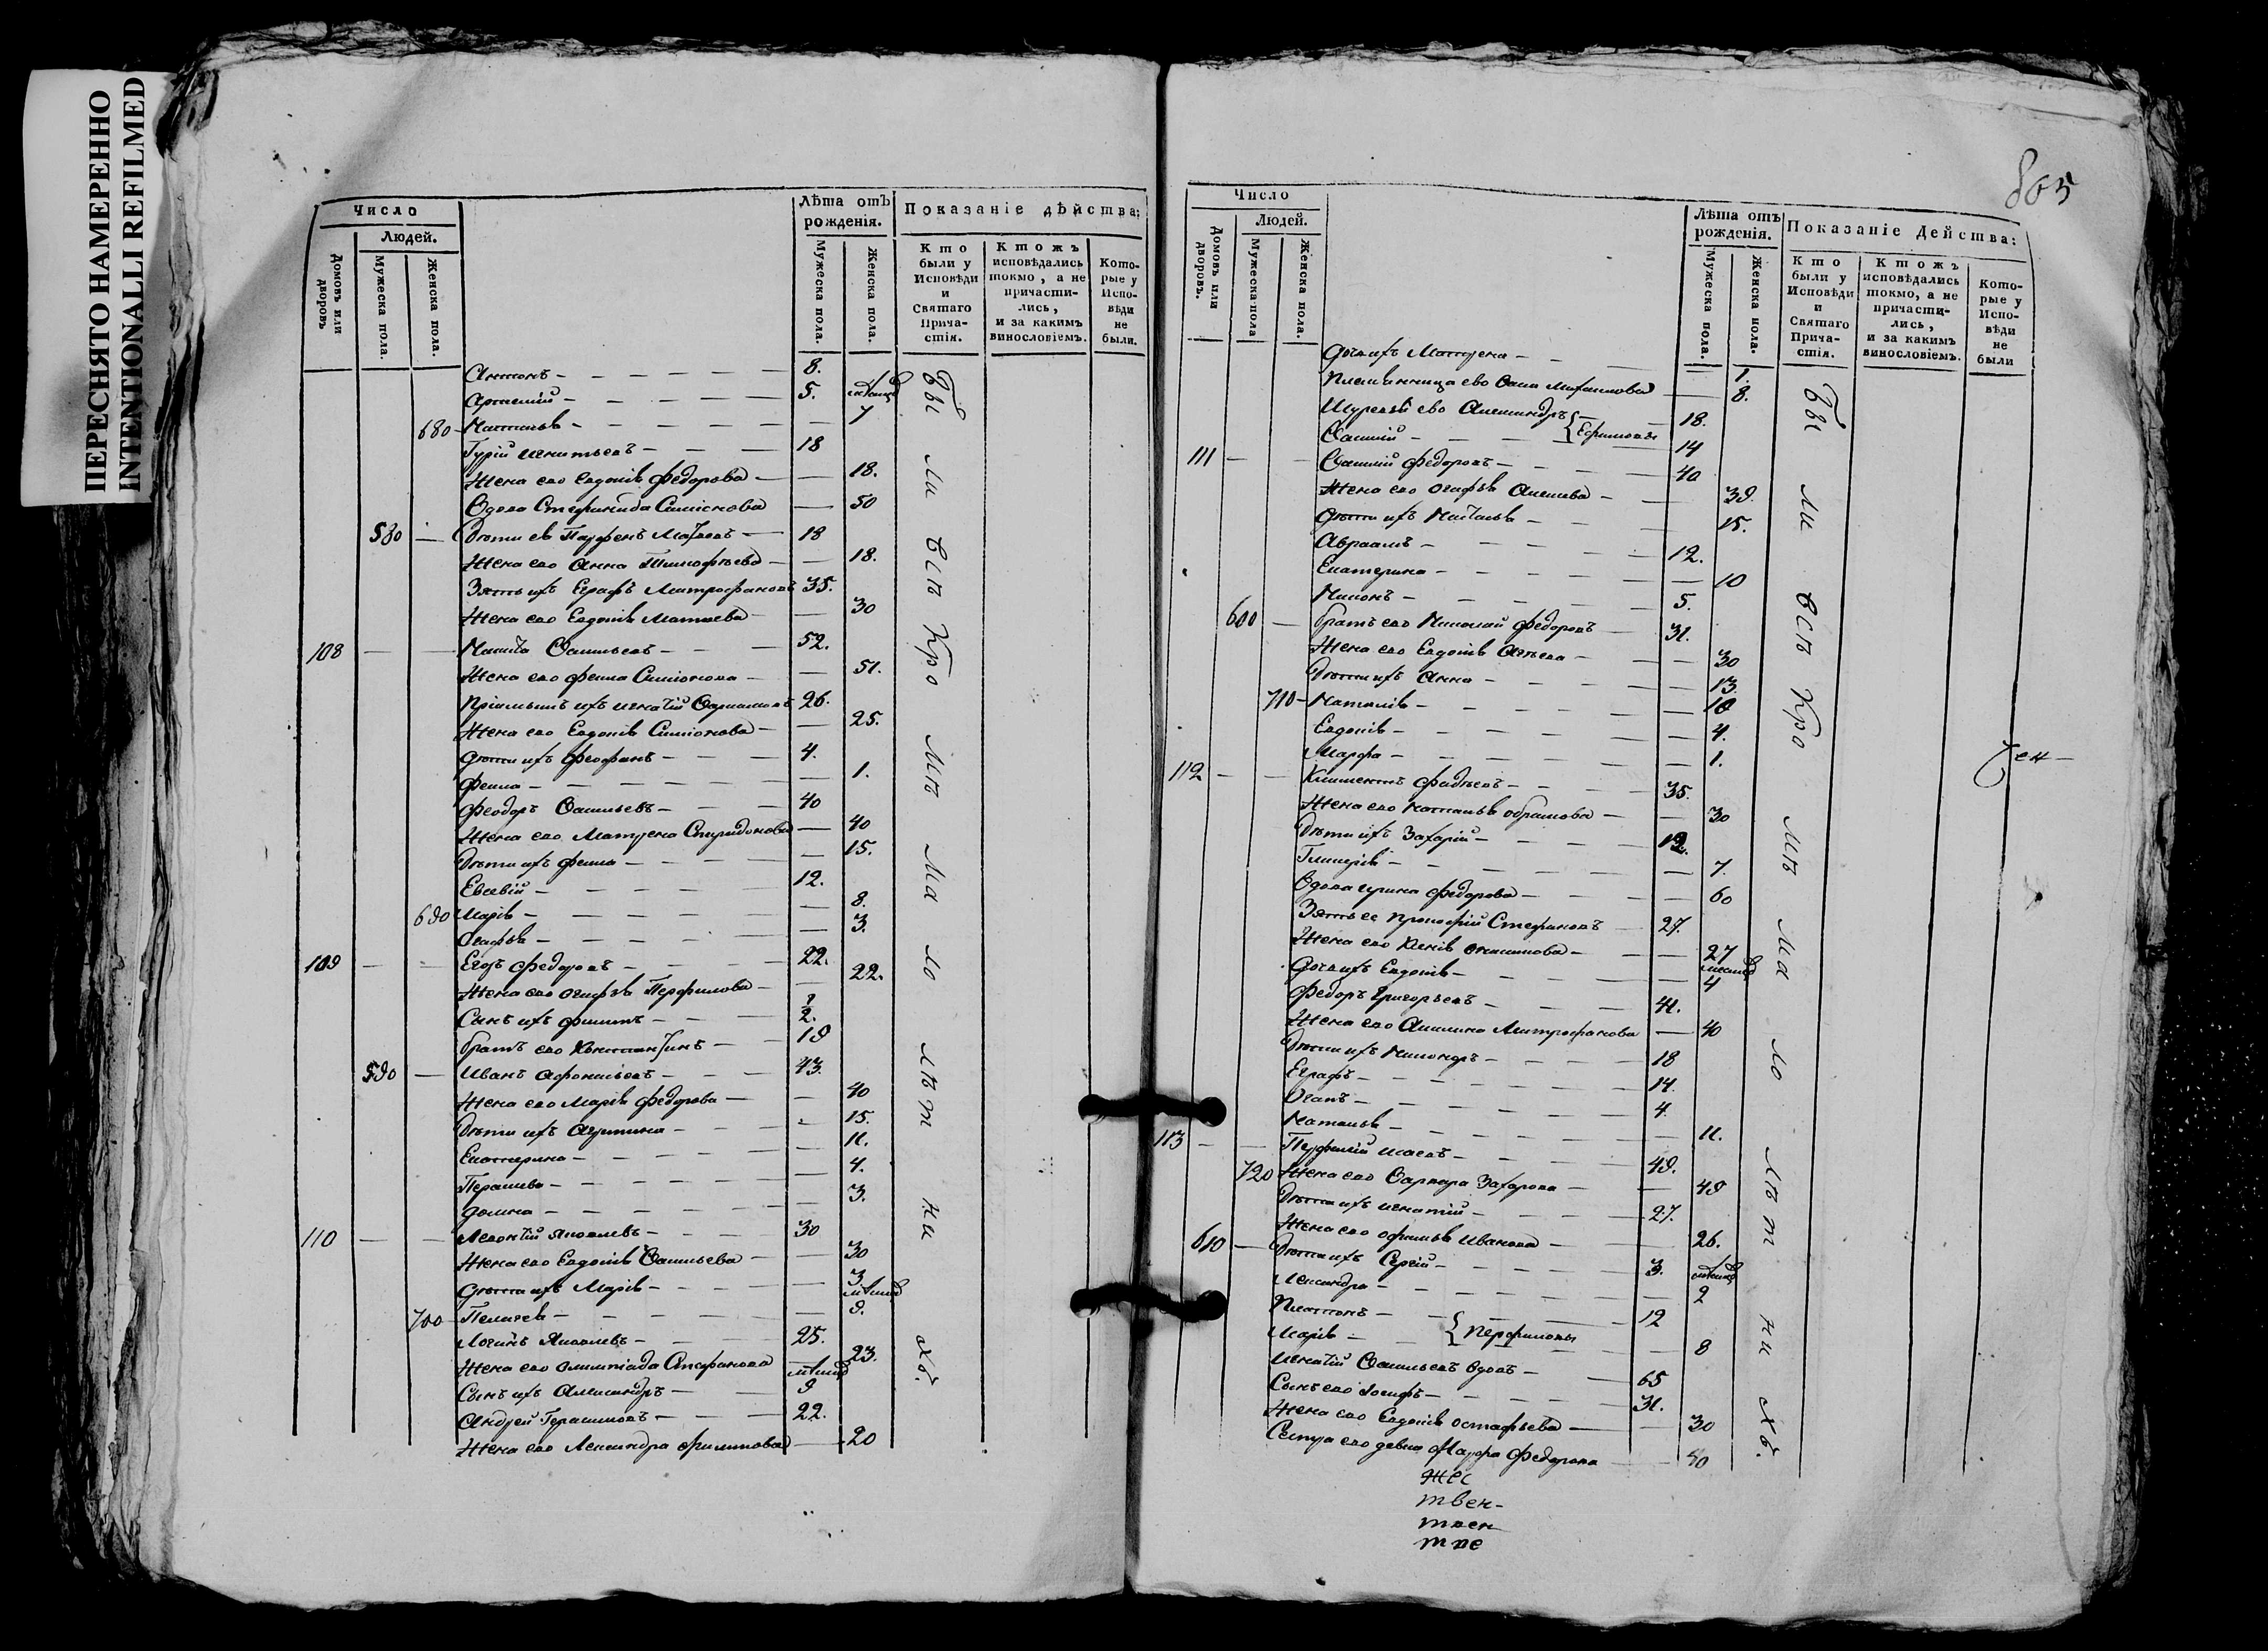 ПЕРЕСНЯТО НАМЕРЕННО
INTENTIONALLI REFILMED
Число
Людей.
Домовъ или дворовъ
Мужеска пола.
Женска пола.
Лѣта отъ рожденія.
Мужеска пола.
Женска пола.
Показаніе дѣйства:
Кто были у Исповѣди и Святаго Причастія.
Ктожъ исповѣдались токмо, а не причастились, и за какимъ винословіемъ.
Которые у Исповѣди не были.
Антонъ 8.
Артемій 5.
680 Наталья 7
Гурій Игнатьевъ 18
Жена ево Евдокія Федорова 18.
Вдова Стефанида Симіонова 50
580 Дѣти ея Парфенъ 18
Жена ево Анна Тимофѣева 18.
Зять ихъ Еграфъ Митрофановъ 35.
Жена ево Евдокія 30
108 Никита Васильевъ 52.
Жена ево Фекла Симіонова 51.
Пріимышъ ихъ Игнатій 26.
Жена ево Евдокія Симіонова 25.
Дѣти ихъ Феофанъ 4.
Фекла 1.
Феодоръ Васильевъ 40
Жена ево Матрена Спиридонова 40
Дѣти ихъ Фекла 15.
Евсевій 12.
690 Марія 8.
Агафья 3.
109 Егоръ Федоровъ 22.
Жена ево Агафья Перфилова 22.
Сынъ ихъ Филипъ
братъ ево Константинъ 19
590 Иванъ Афонасьевъ 43.
Жена ево Марія Федорова 40
Дѣти ихъ Агрипина 15.
Екатерина 11.
Парасковья 4.
Домна 3.
110 Леонтій Яковлевъ 30
Жена ево Евдокія Васильева 30
Дѣти ихъ Марія 3
700 Пелагея 9.
Логинъ Яковлевъ 25.
Жена ево Олимпіада Стефанова 23.
Сынъ ихъ Александръ 9
Андрей Герасимовъ 22.
Жена ево Лександра Филипова 20
Бы ли въ Кро мѣ ма ло лѣт ни хъ.
805
Число
Людей.
Домовъ или дворовъ.
Мужеска пола
Женска пола.
Лѣта отъ рожденія.
Мужеска пола.
Женска пола.
Показаніе Действа:
Кто были у Исповѣди и Святаго Причастія.
Ктожъ исповѣдались токмо, а не причастились, и за какимъ винословіемъ.
Которые у Исповѣди не были
Дочь ихъ Матрена 1.
Племянница ево 8.
Шурья ево Александръ 18.
Василій } Ефимовы 14
111 Василій Федоровъ 40
Жена ево Агафья 39.
Дѣти ихъ Наталья 15.
Авраамъ 12.
Екатерина 10
Никонъ 5.
600 братъ ево Николай Федоровъ 31.
Жена ево Евдокія 30
Дѣти ихъ Анна 13.
710 Наталія 10
Евдокія 4.
Марфа 1.
112 Климентъ Фадѣевъ 35.
Жена ево Наталья Абрамова 30
Дѣти ихъ Захарій 12.
Гликерія 7.
Вдова Ирина Федорова 60
Зять ее Прокофій Стефановъ 27.
Жена ево Ксенія 27
Дочь ихъ Евдокія 4
Федоръ Григорьевъ 41.
Жена ево Акилина Митрофанова 40
Дѣти ихъ Никаноръ 18
Еграфъ 14.
Осипъ 4.
Наталья 11.
113 Перфилій 49.
720 Жена ево Варвара Захарова 49
Дѣти ихъ Игнатій 27.
Жена ево Афимья Иванова 26.
610 Дѣти ихъ Сергій 3.
Лександра 2
Платонъ 12
Марія } Перфиловы 8
Игнатій Васильевъ вдовъ 65
Сынъ ево Іосифъ 31.
Жена ево Евдокія Остафьева 30
Сестра ево девка Марфа Федорова 40
Бы ли въ Кро мѣ ма ло лѣт ни хъ.
жес
твен-
твен
тве